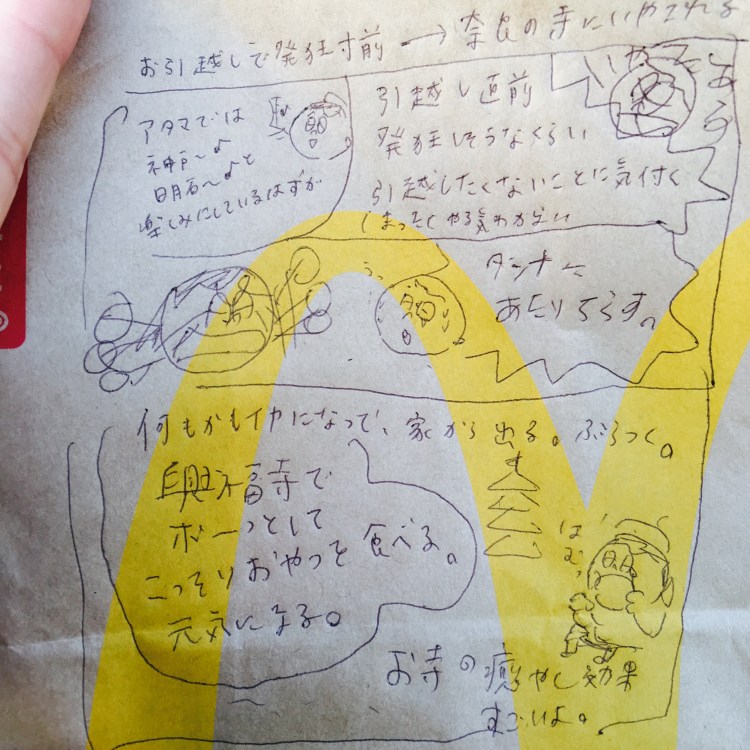 お引越しで発狂寸前→奈良の寺にいやされる
アタマでは
神戸〜♪と
明石〜♪
楽しみにしているはずが
引越し直前
発狂しそうなくらい
引越したくないことに気付く
まったくやる気わかない
いやである
ダンナに
あたりちらす。
うっ
何もかもイヤになって、家から出る。ぶらつく。
興福寺で
ボーっとして
こっそりおやつを食べる。
元気になる。
はむっ
お寺の癒やし効果
すごいよ。